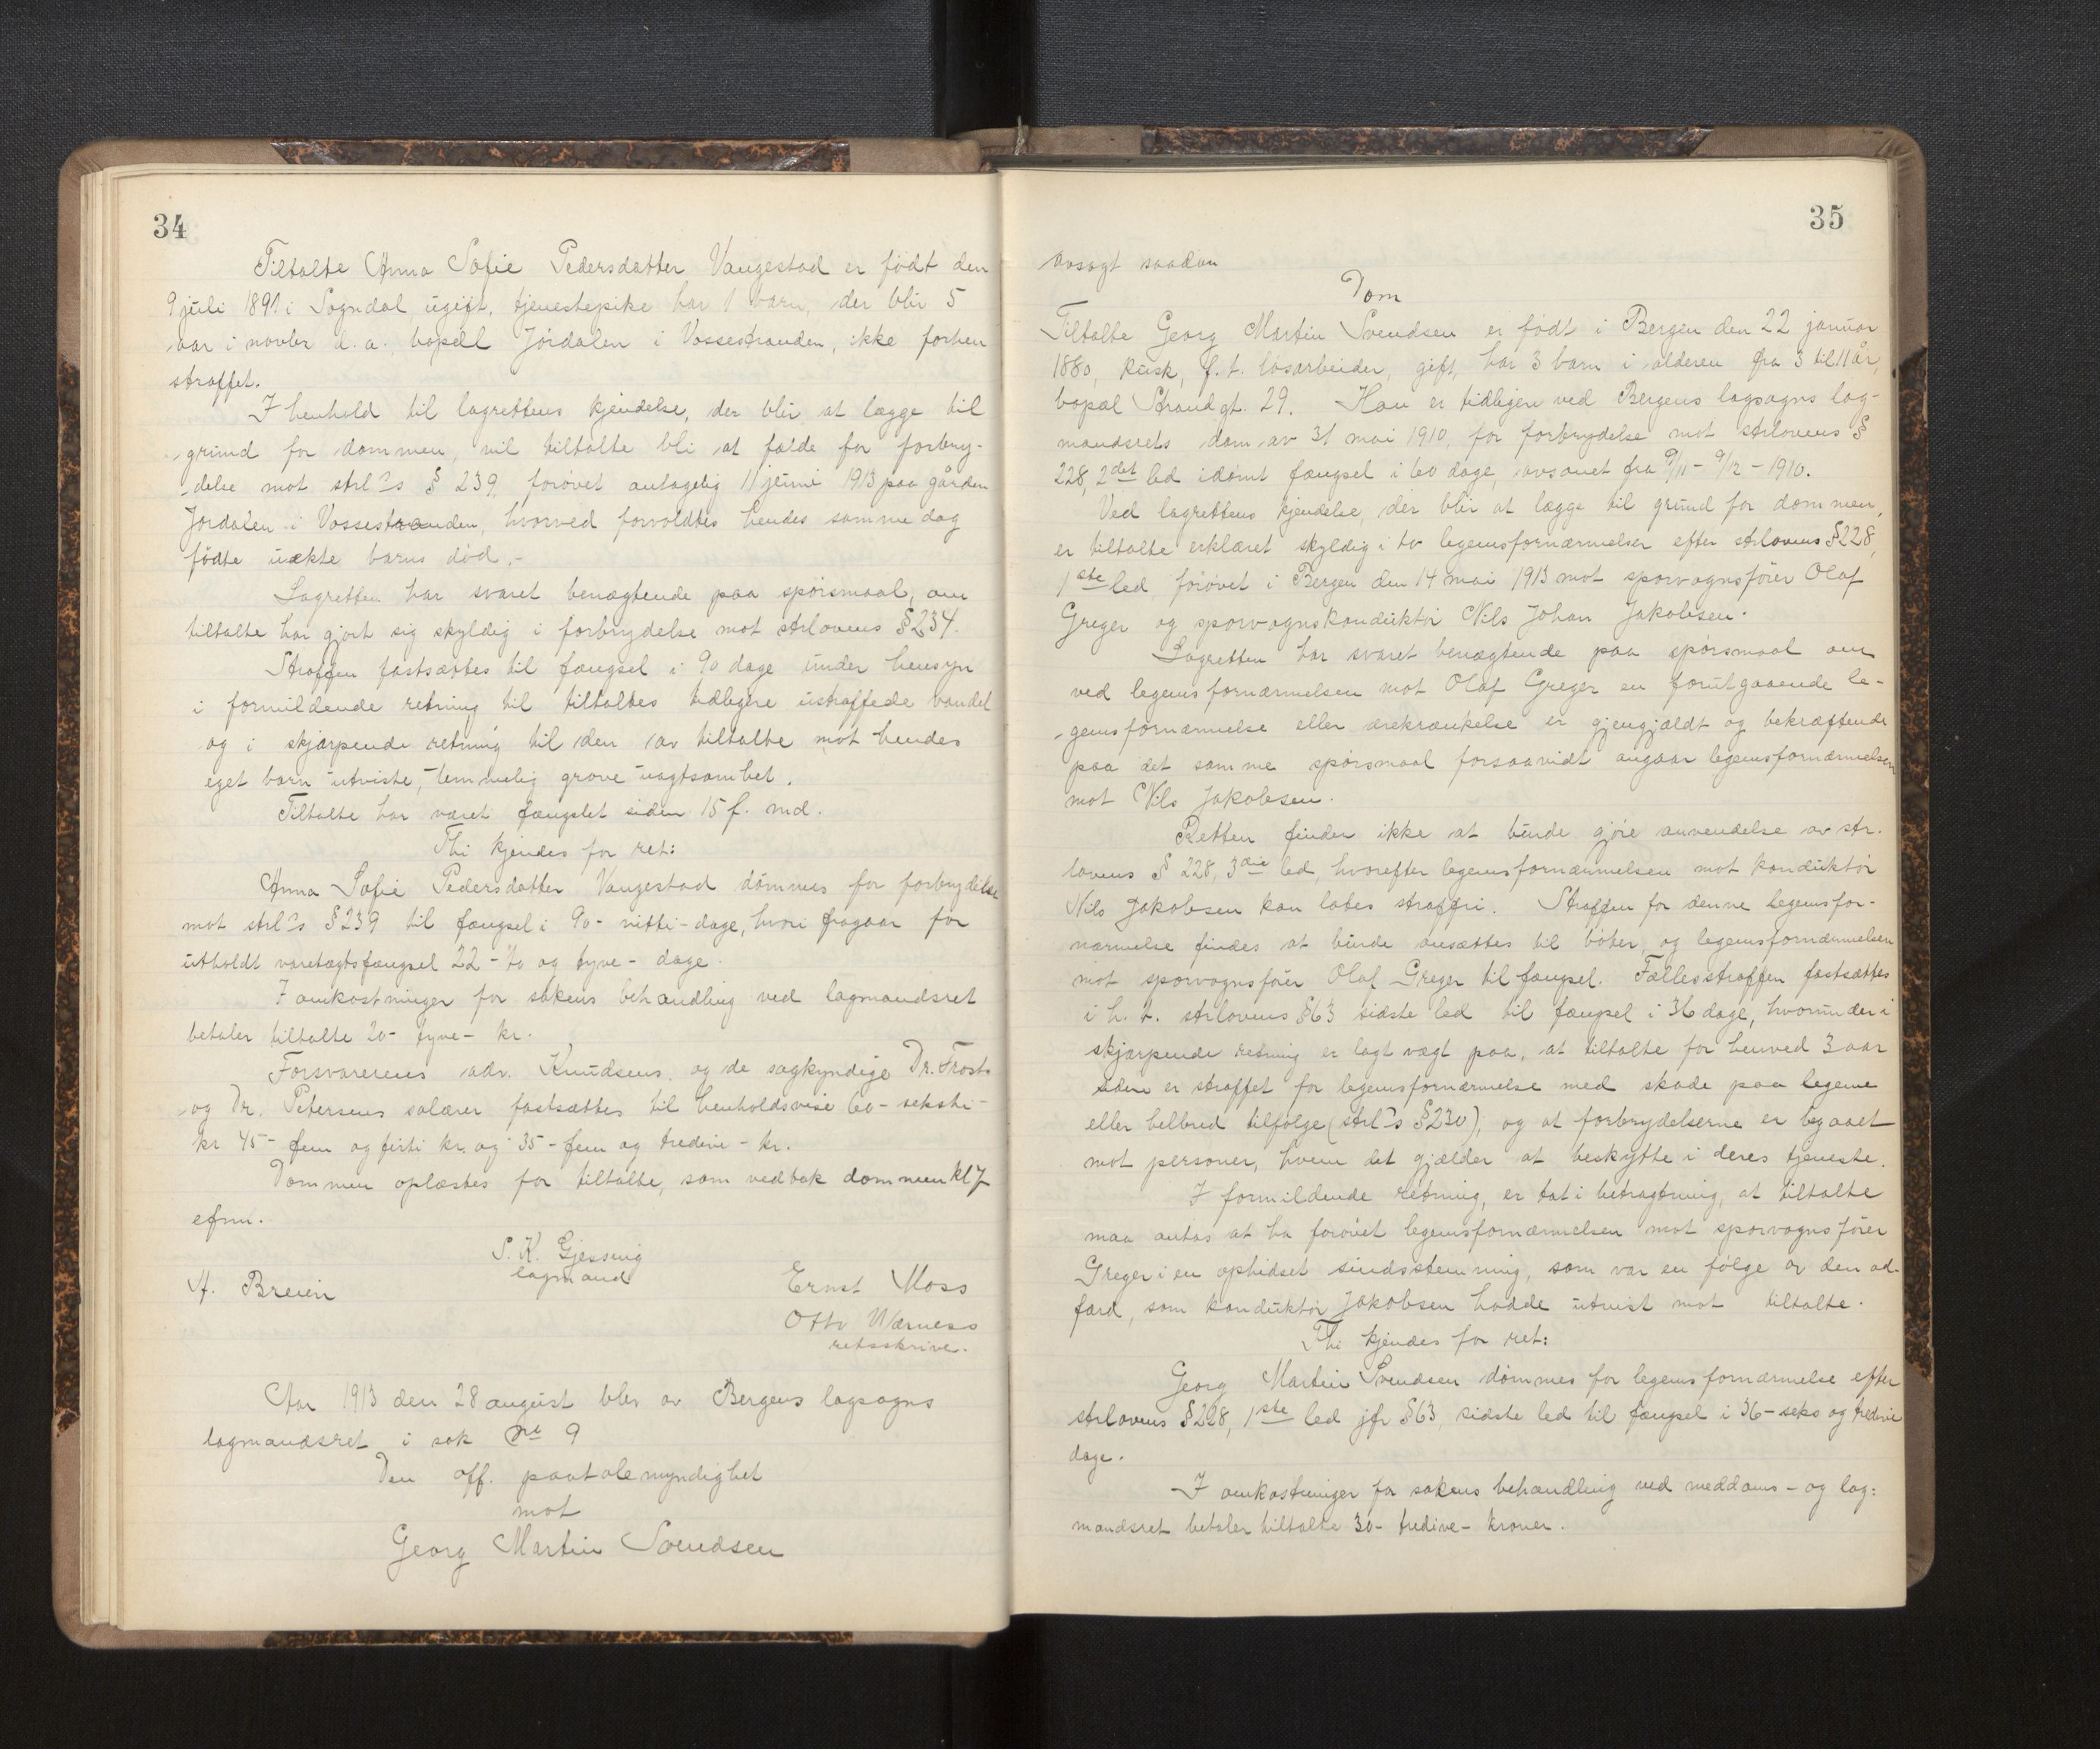 34
Tiltalte Anna Sofie Pedersdatter Vangestad er født den
9 juli 1891 i Sogndal, ugift, tjenestepike har 1 barn, der blir 5
aar i novbr d. a., bopæl Jordalen i Vossestranden, ikke forhen
straffet.
I henhold til lagrettens kjendelse, der blir at lægge til
grund for dommen, vil tiltalte bli at fælde for forbry-
delse mot strl's § 239, forøvet antagelig 11 juni 1913 paa gården
Jordalen i Vossestranden, hvorved forvoldtes hendes samme dag
fødte uækte barns død.-
Lagretten har svaret benægtende paa spørsmaal, om
tiltalte har gjort sig skyldig i forbrydelse mot strlovens § 234.
Straffen fastsættes til fængsel i 90 dage under hensyn
i formildende retning til tiltaltes tidligere ustraffede vandel
og i skjærpende retning til den av tiltalte mot hendes
eget barn utviste, temmelig grove uagtsomhet.
Tiltalte har været fængslet siden 15 f. md.
Thi kjendes for ret:
Anna Sofie Pedersdatter Vangestad dømmes for forbrydelse
mot strl's § 239 til fængsel i 90- nitti- dage, hvori fragaar for
utholdt varetægtsfængsel 22 - to og tyve - dage.
I omkostninger for sakens behandling ved lagmandsret
betaler tiltalte 20- tyve- kr.
Forsvarerens adv. Knudsens og de sagkyndige Dr. Frosts
og Dr. Petersens salærer fastsættes til henholdsvise 60- seksti-
kr 45- fem og førti kr. og 35- fem og tredive- kr.
Dommen oplæstes for tiltalte, som vedtok dommen kl 7
efm.
S. K. Gjessing
lagmand
A. Breien
Ernst Moss
Otto Wærness
retsskriver.
Aar 1913 den 28 august blev av Bergens lagsogns
lagmandsret i sak nr 9
Den off. paatalemyndighet
mot
Georg Martin Svendsen
35
avsagt saadan
Dom
Tiltalte Georg Martin Svendsen er født i Bergen den 22 januar
1880, kusk, f. t. løsarbeider, gift, har 3 barn i alderen fra 3 til 11 år,
bopæl Strandgt. 29. Han er tidligere ved Bergens lagsogns lag-
mandsrets dom av 31 mai 1910, for forbrydelse mot strlovens §
228, 2det led idømt fængsel i 60 dage, avsonet fra 9/11 - 9/12 - 1910.
Ved lagrettens kjendelse, der blir at lægge til grund for dommen,
er tiltalte erklæret skyldig i to legemsfornærmelser efter strlovens § 228,
1ste led, forøvet i Bergen den 14 mai 1913 mot sporvognsfører Olaf
Greger og sporvognskonduktør Nils Johan Jakobsen.
Lagretten har svaret benægtende paa spørsmaal om
ved legemsfornærmelsen mot Olaf Greger en forutgaaende le-
gemsfornærmelse eller ærekrænkelse er gjengjældt og bekræftende
paa det samme spørsmaal forsaavidt angaar legemsfornærmelsen
mot Nils Jakobsen.
Retten finder ikke at burde gjøre anvendelse av str.
lovens § 228, 3die led, hvorefter legemsfornærmelsen mot konduktør
Nils Jakobsen kan lates straffri. Straffen for denne legemsfor-
nærmelse findes at burde ansættes til bøter, og legemsfornærmelsen
mot sporvognsfører Olaf Greger til fængsel. Fællesstraffen fastsættes
i h. t. strlovens § 63 sidste led til fængsel i 36 dage, hvorunder i
skjærpende retning er lagt vægt paa, at tiltalte for henved 3 aar
siden er straffet for legemsfornærmelse med skade paa legeme
eller helbred tilfølge (strl's § 230), og at forbrydelserne er begaaet
mot personer, hvem det gjælder at beskytte i deres tjeneste.
I formildende retning, er tat i betragtning, at tiltalte
maa antas at ha forøvet legemsfornærmelsen mot sporvognsfører
Greger i en ophidset sindsstemning, som var en følge av den ad-
færd, som konduktør Jakobsen hadde utvist mot tiltalte.
Thi kjendes for ret:
Georg Martin Svendsen dømmes for legemsfornærmelse efter
strlovens § 228, 1ste led jfr § 63, sidste led til fængsel i 36- seks og tredive
dage.
I omkostninger for sakens behandling ved meddoms- og lag:
mandsret betaler tiltalte 30- tredive- kroner.